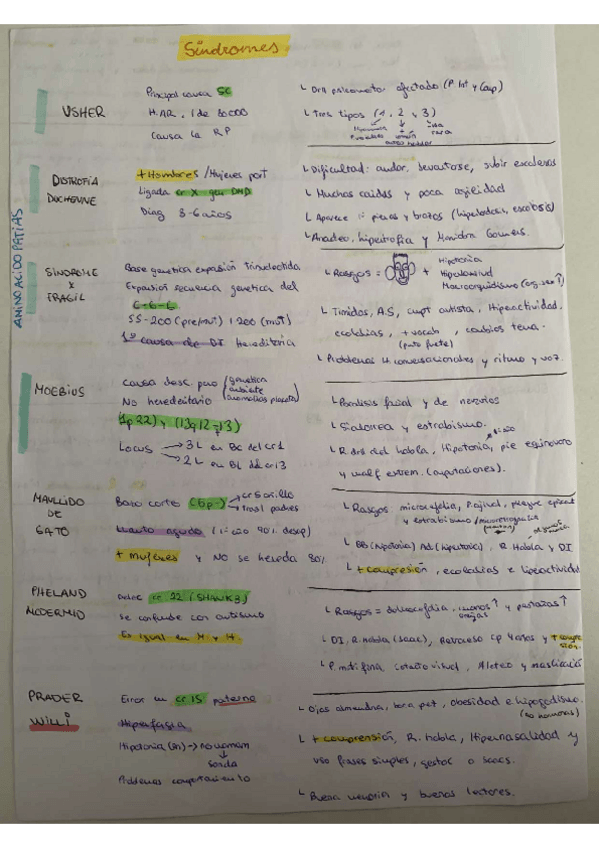 Síndromes
USHER
Principal causa SC
H.AR. 1 de
Causa la RP
└ Dm psicomotor afectado (P. Int y Cap)
└ Tres tipos (1, 2 y 3)
rara
AMINOACIDOPATÍAS
DISTROFIA DUCHENNE
+ Hombres / Mujeres port
Ligada cr X gen DMD
Diag 3-6 años
└ Dificultad: andar, levantarse, subir escaleras
└ Muchas caídas y poca agilidad
└ Aparece piernas y brazos (hiperlordosis, escoliosis)
└ Anadeo, hipertrofia y Maniobra Gowers.
SÍNDROME X FRÁGIL
Base genética expansión trinucleótida
Expansión secuencia genética del
C-G-G
55-200 (premut) 200 (mut)
1ª causa de DI Hereditaria
└ Rasgos = + Hipotonía
Hiperlaxitud
Macroorquidismo (org. sex ↑)
└ Timidos, A.S, cmpt autista, Hiperactividad.
ecolalias, + vocab, cambios tema.
(pto fuerte)
└ Problemas H conversacionales y ritmo y voz.
MOEBIUS
Causa desc. pero (genética
ambiente
anomalías placenta)
No hereditario
1p22) y (13q12-13)
Locus → 3L en BC del cr1
→ 2L en BL del cr13
└ Parálisis facial y de nervios
└ Sialorrea y estrabismo.
└ R. habla, Hipotonía, pie equinovaro
y malf extrem. (amputaciones).
MAULLIDO DE GATO
Brazo corto (5p-) → cr 5 anillo
→ trasl padres
Llanto agudo (1º año 90% desap)
+ Mujeres y NO se hereda 80%
└ Rasgos microcefalia, P. ojival, pliegue epical
y estrabismo / micrognatia
└ BB (hipotonía) Ad (hipertonía), R. Habla y DI
└ + compresión, ecolalias e hiperactividad
PHELAND MCDERMID
cr 22 (SHANK3)
Se confunde con autismo
Es igual en M y H.
└ Rasgos = dolicocefalia, manos ↑ y pestañas ↑
└ DI, R. habla (saac), Retroceso cp 4 años y + compre
sión.
└ P. mot fina, cotacto visual, Aleteo y masticación
PRADER WILLI
Error en cr 15 paterno
Hiperfagia
Hipotonía (BB) → no maman
↓
sonda
Problemas comportamiento
└ Ojos almendra, boca pez, obesidad e hipogodismo.
(no hormonas)
└ + comprensión, R. habla, Hipernasalidad y
uso frases simples, gestos o saacs.
└ Buena memoria y buenos lectores.